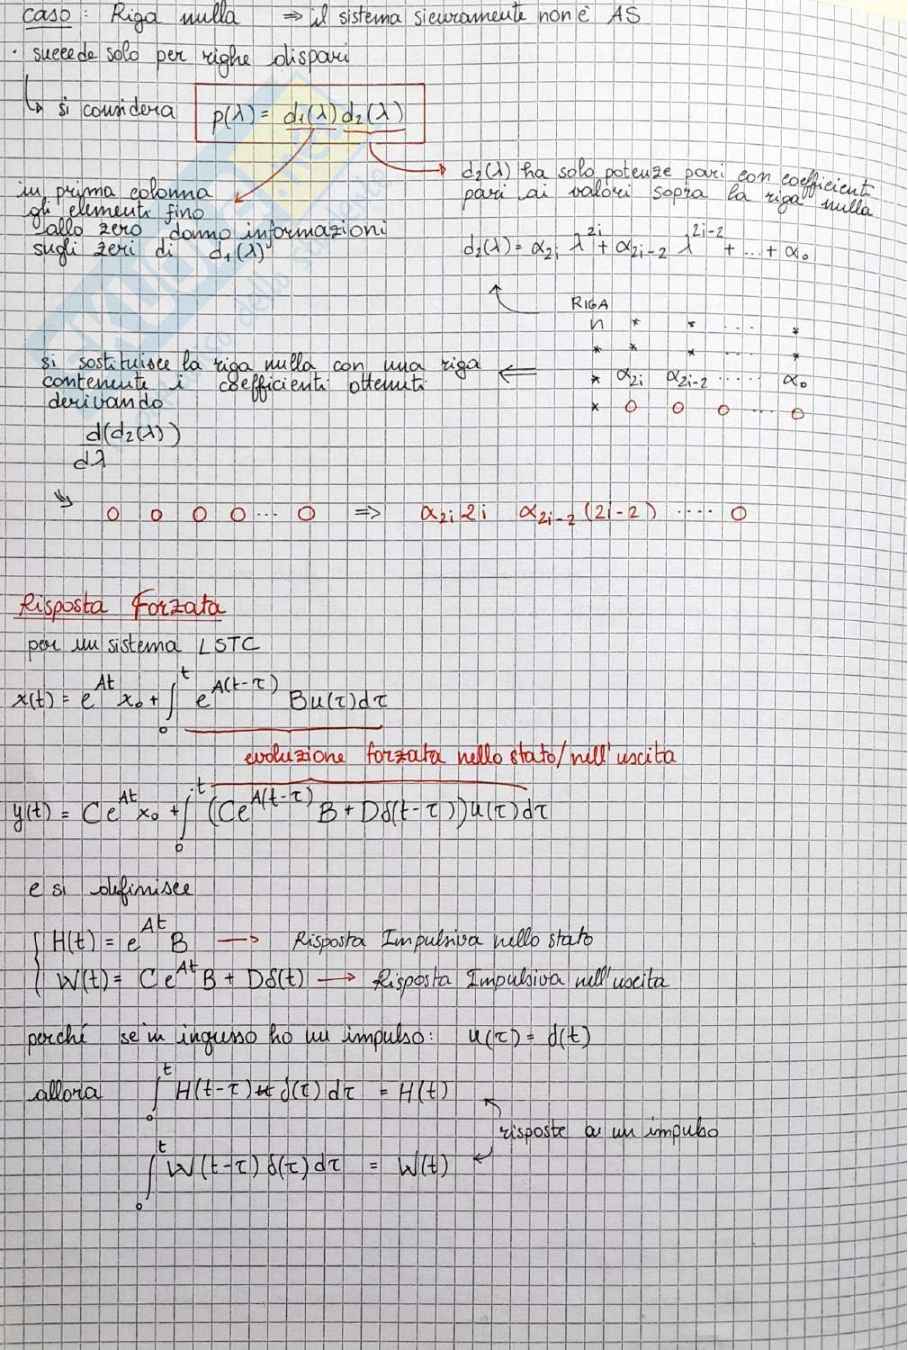 caso: Riga nulla ⇒ il sistema sicuramente non è AS
· succede solo per righe dispari
↳ si considera p(λ) = d₁(λ) d₂(λ)
in prima colonna
gli elementi fino
allo zero danno informazioni
sugli zeri di d₁(λ)
d₂(λ) ha solo potenze pari con coefficienti
pari ai valori sopra la riga nulla
d₂(λ) = α₂ᵢ λ²ⁱ + α₂ᵢ₋₂ λ²ⁱ⁻² + ... + α₀
RIGA
n * * ... *
* * * ... *
* α₂ᵢ α₂ᵢ₋₂ ..... α₀
* 0 0 0 ... 0
si sostituisce la riga nulla con una riga ⇐
contenente i coefficienti ottenuti
derivando
d(d₂(λ))
dλ
0 0 0 0 ... 0 ⇒ α₂ᵢ 2i α₂ᵢ₋₂ (2i-2) .... 0
Risposta Forzata
per un sistema LSTC
x(t) = e^{At} x₀ + ∫₀ᵗ e^{A(t-τ)} Bu(τ)dτ
evoluzione forzata nello stato/nell'uscita
y(t) = Ce^{At} x₀ + ∫₀ᵗ (Ce^{A(t-τ)} B + Dδ(t-τ))u(τ)dτ
e si definisce
H(t) = e^{At} B → Risposta Impulsiva nello stato
W(t) = Ce^{At} B + Dδ(t) → Risposta Impulsiva nell'uscita
perché se in ingresso ho un impulso: u(τ) = d(t)
allora ∫₀ᵗ H(t-τ) δ(τ) dτ = H(t)
risposte a un impulso
∫₀ᵗ W(t-τ) δ(τ) dτ = W(t)